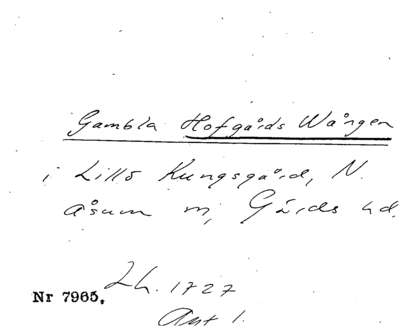 Gambla Hofgårds Wången
i Lillö Kungsgård, N.
Åsum m, Gärds hd.
Lh. 1727
Nr 7965.
Akt 1.